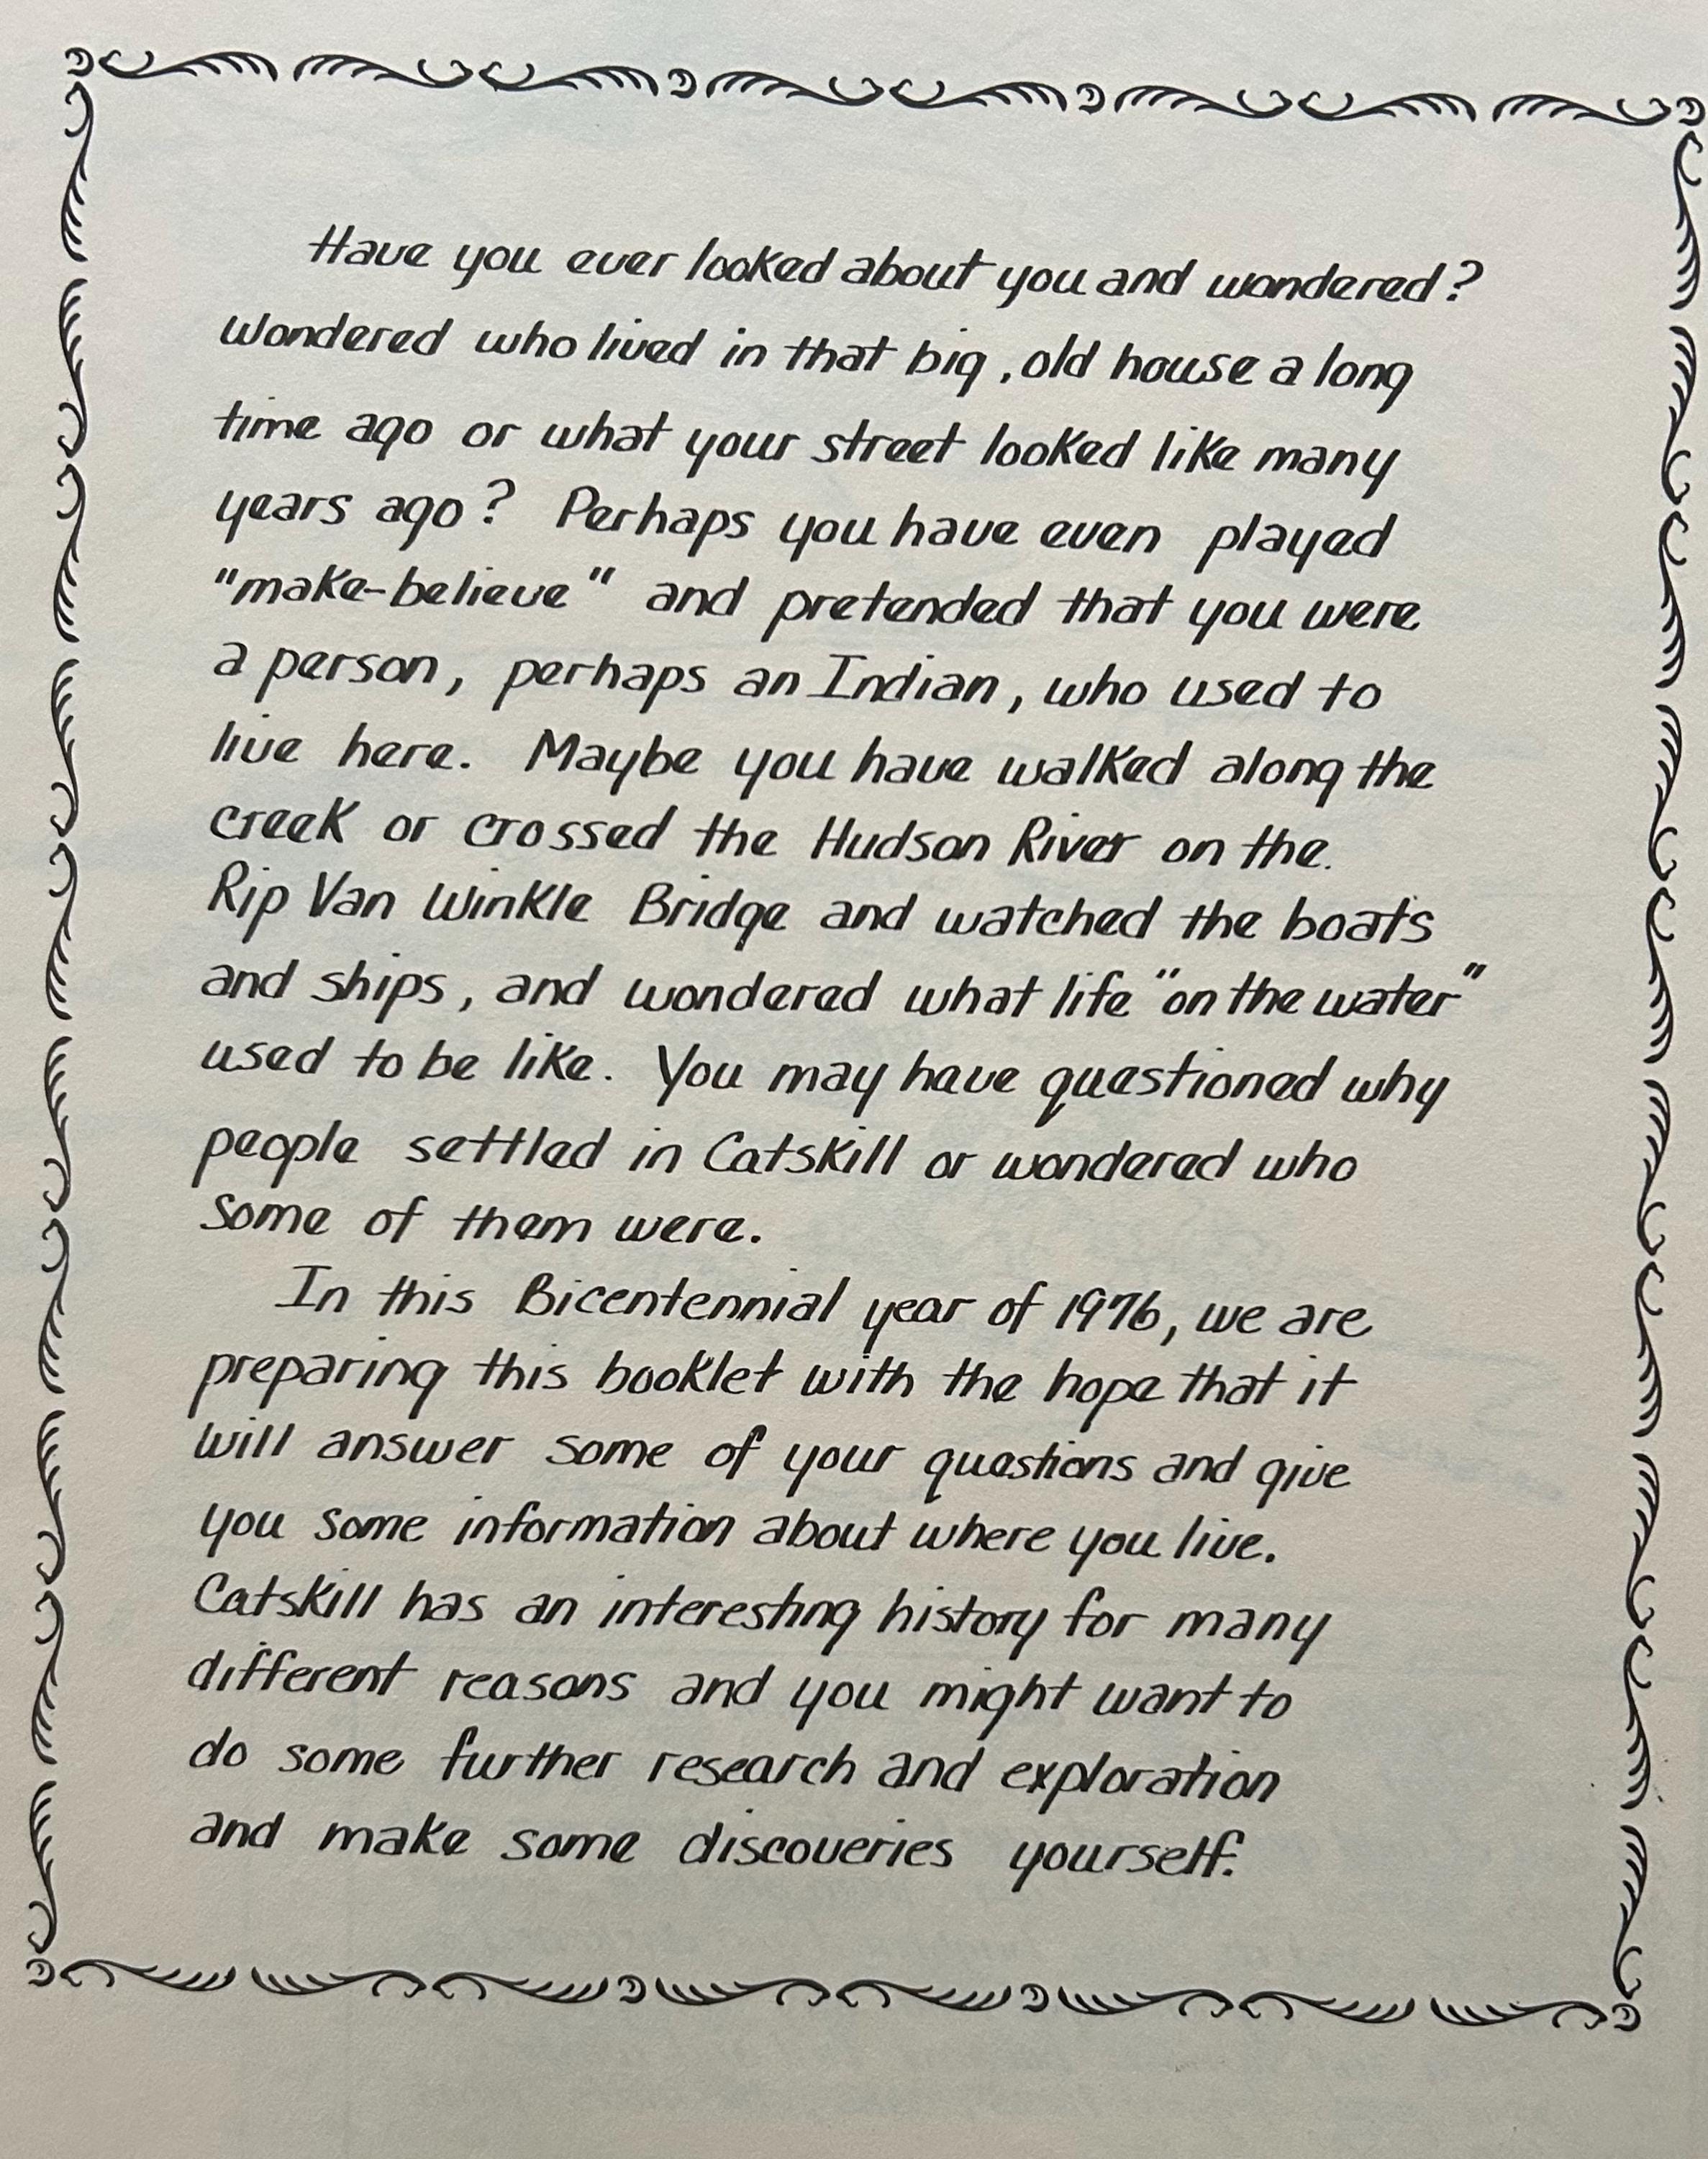 Have you ever looked about you and wondered?
Wondered who lived in that big, old house a long
time ago or what your street looked like many
years ago? Perhaps you have even played
"make-believe" and pretended that you were
a person, perhaps an Indian, who used to
live here. Maybe you have walked along the
creek or crossed the Hudson River on the
Rip Van Winkle Bridge and watched the boats
and ships, and wondered what life "on the water"
used to be like. You may have questioned why
people settled in Catskill or wondered who
some of them were.
In this Bicentennial year of 1976, we are
preparing this booklet with the hope that it
will answer some of your questions and give
you some information about where you live.
Catskill has an interesting history for many
different reasons and you might want to
do some further research and exploration
and make some discoveries yourself.